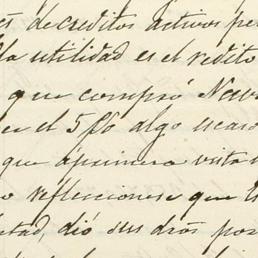 es de creditos activos pe
la utilidad es el redito
que compró Nava
er el 5 p% algo escaso
que aprimera vista
o reflecciones que
tad, dió sus dros por